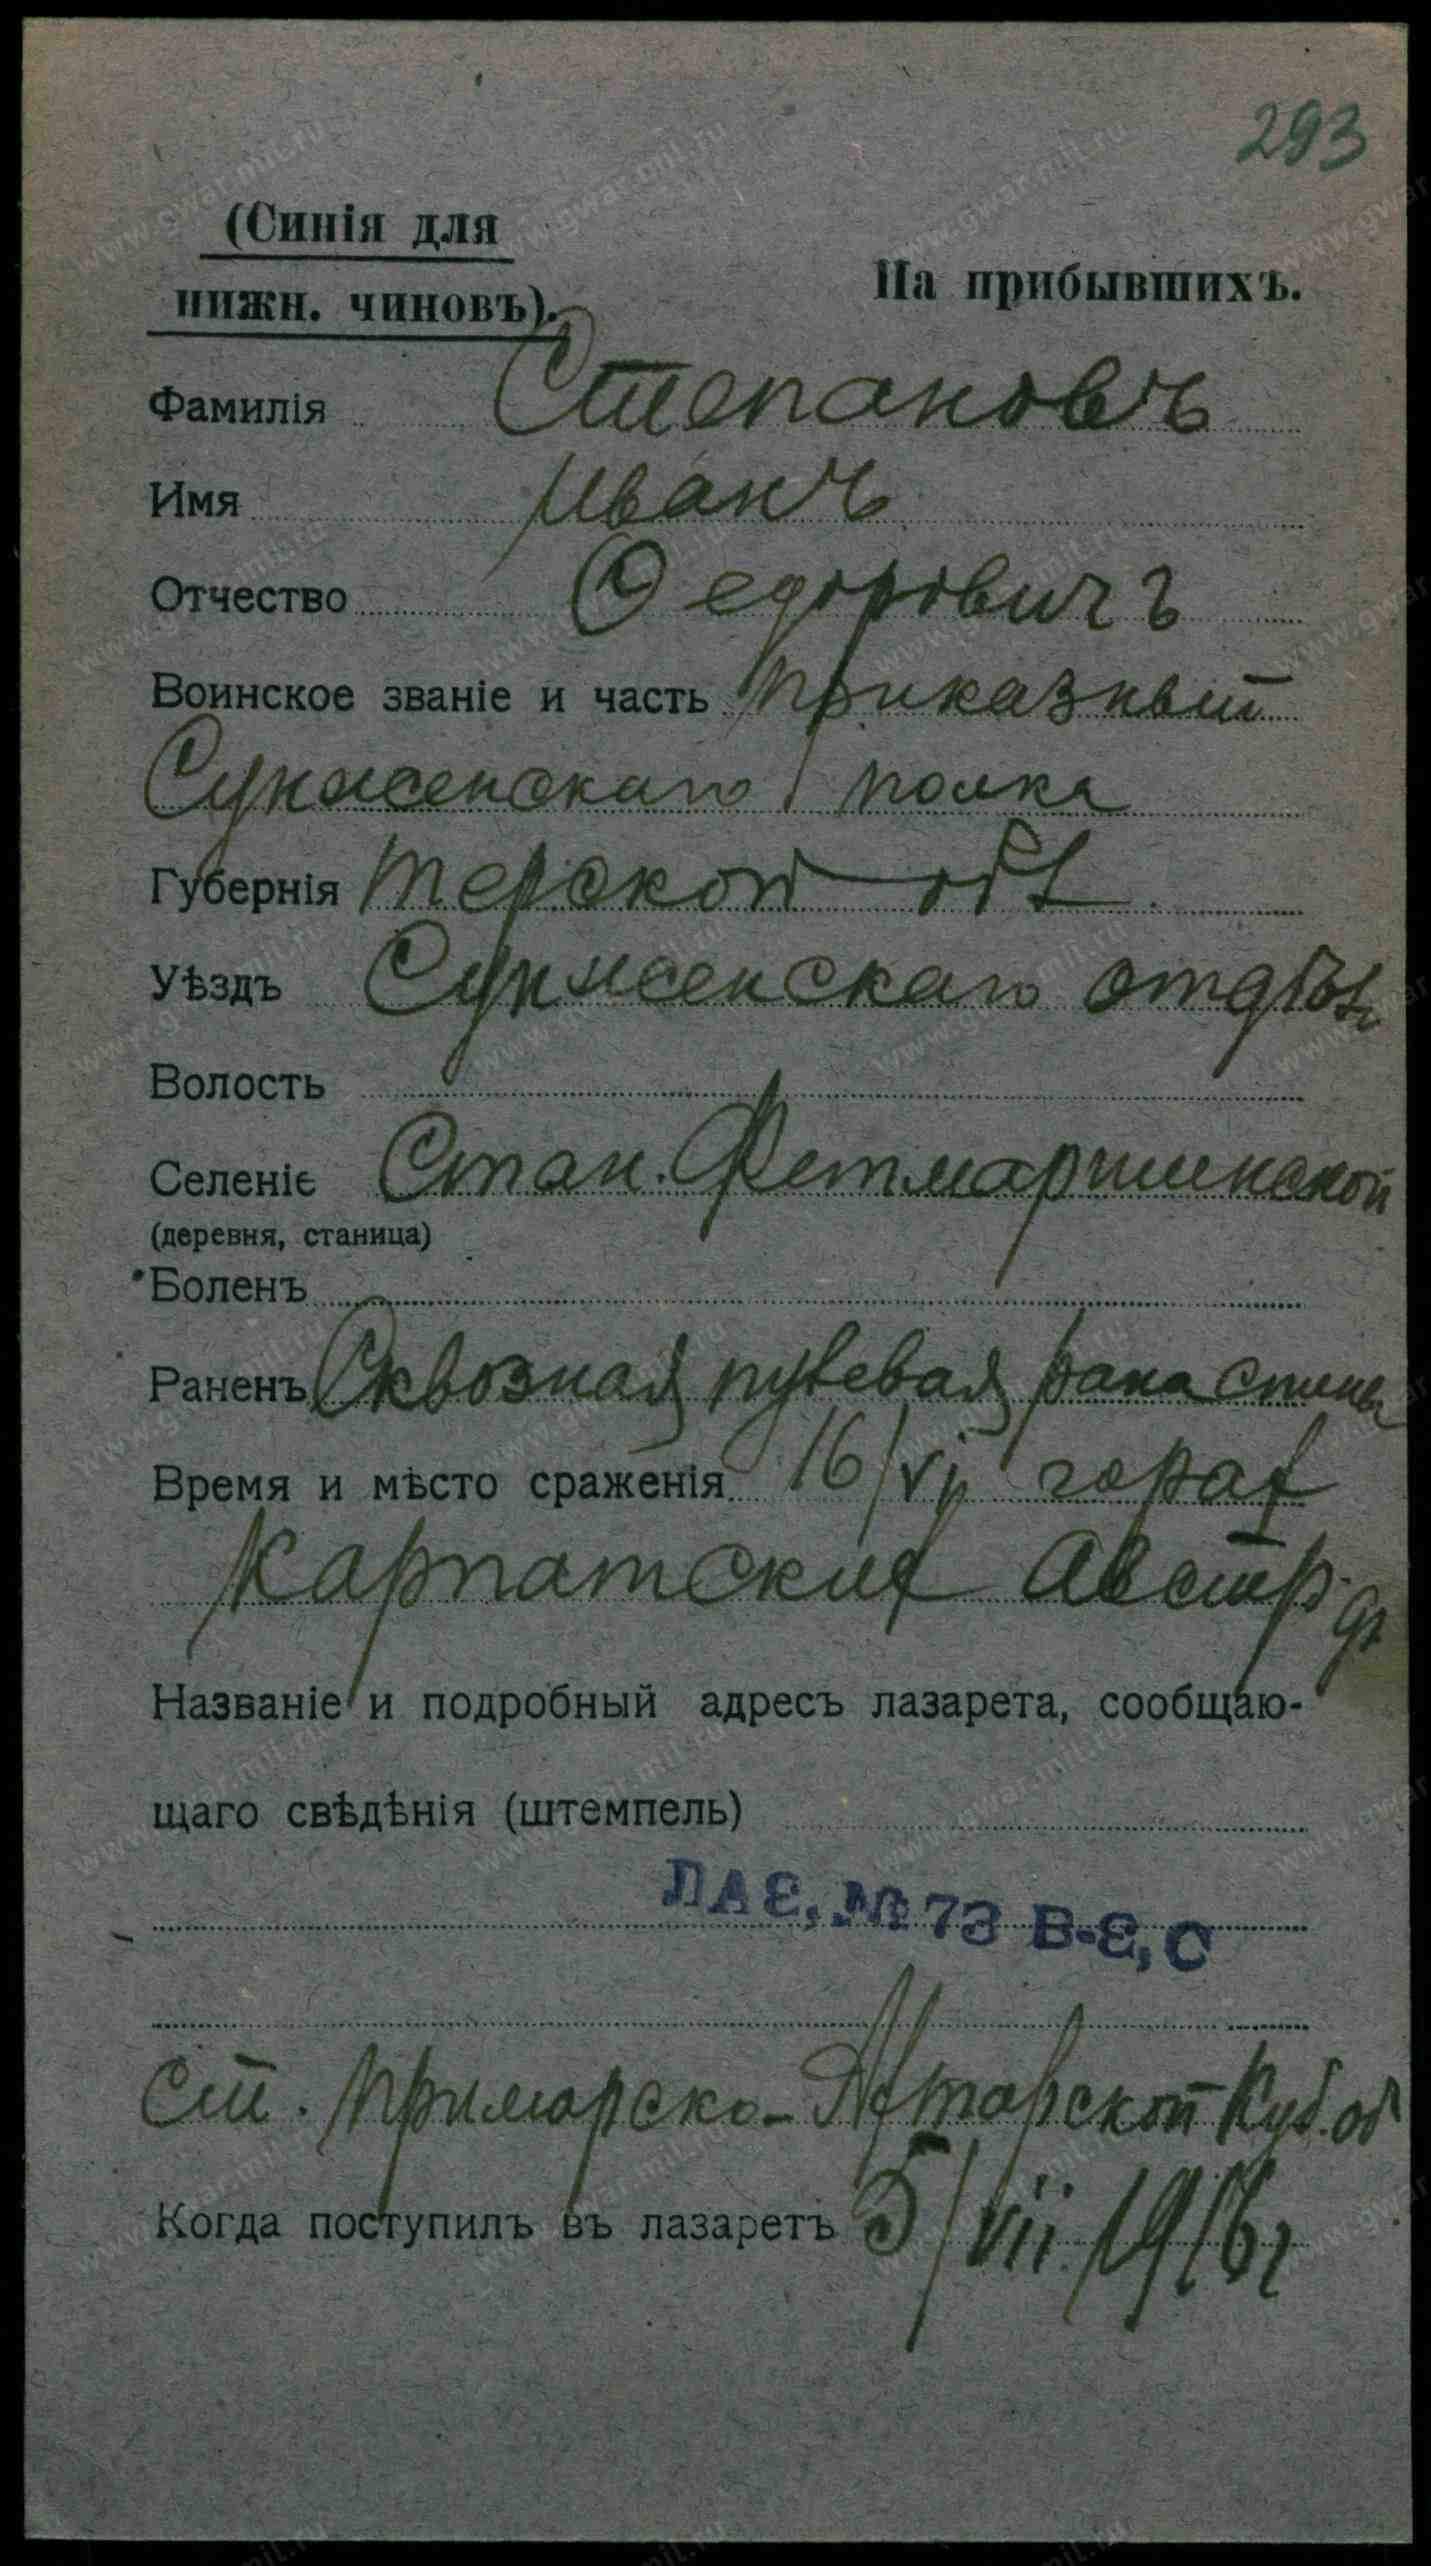 293
(Синія для
нижн. чиновъ).
На прибывшихъ.
Фамилія Степановъ
Имя Иванъ
Отчество Ѳедоровичъ
Воинское званіе и часть приказный
Сунженскаго полка
Губернія Терской обл
Уѣздъ Сунженскаго отдѣла
Волость
Селеніе Стан. Фетмаршинской
(деревня, станица)
Боленъ
Раненъ Сквозная пулевая рана спины
Время и мѣсто сраженія 16/VI горах
Карпатских Австр.
Названіе и подробный адресъ лазарета, сообщаю-
щаго свѣдѣнія (штемпель)
ЛАЗ, № 73 В-З, С
ст. Приморско-Ахтарской Куб. об
Когда поступилъ въ лазаретъ 5/VII 1916 г